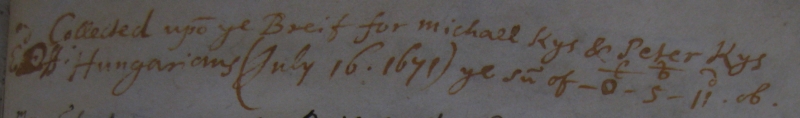 Collected upō ye Breif for michaell Kys & Peter Kys
Hungarians (July 16. 1671) ye sū of - 0 - 5 - 11. ob.